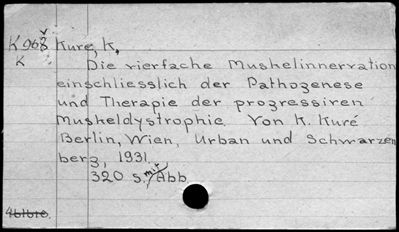 K968 Kure, K,
K Die vierfache Muskelinnervation
einschliesslich der Pathogenese
und Therapie der progressiren
Muskeldystrophie. Von K. Kuré
Berlin, Wien, Urban und Schwarzen
berg, 1931.
320 S. mit Abb